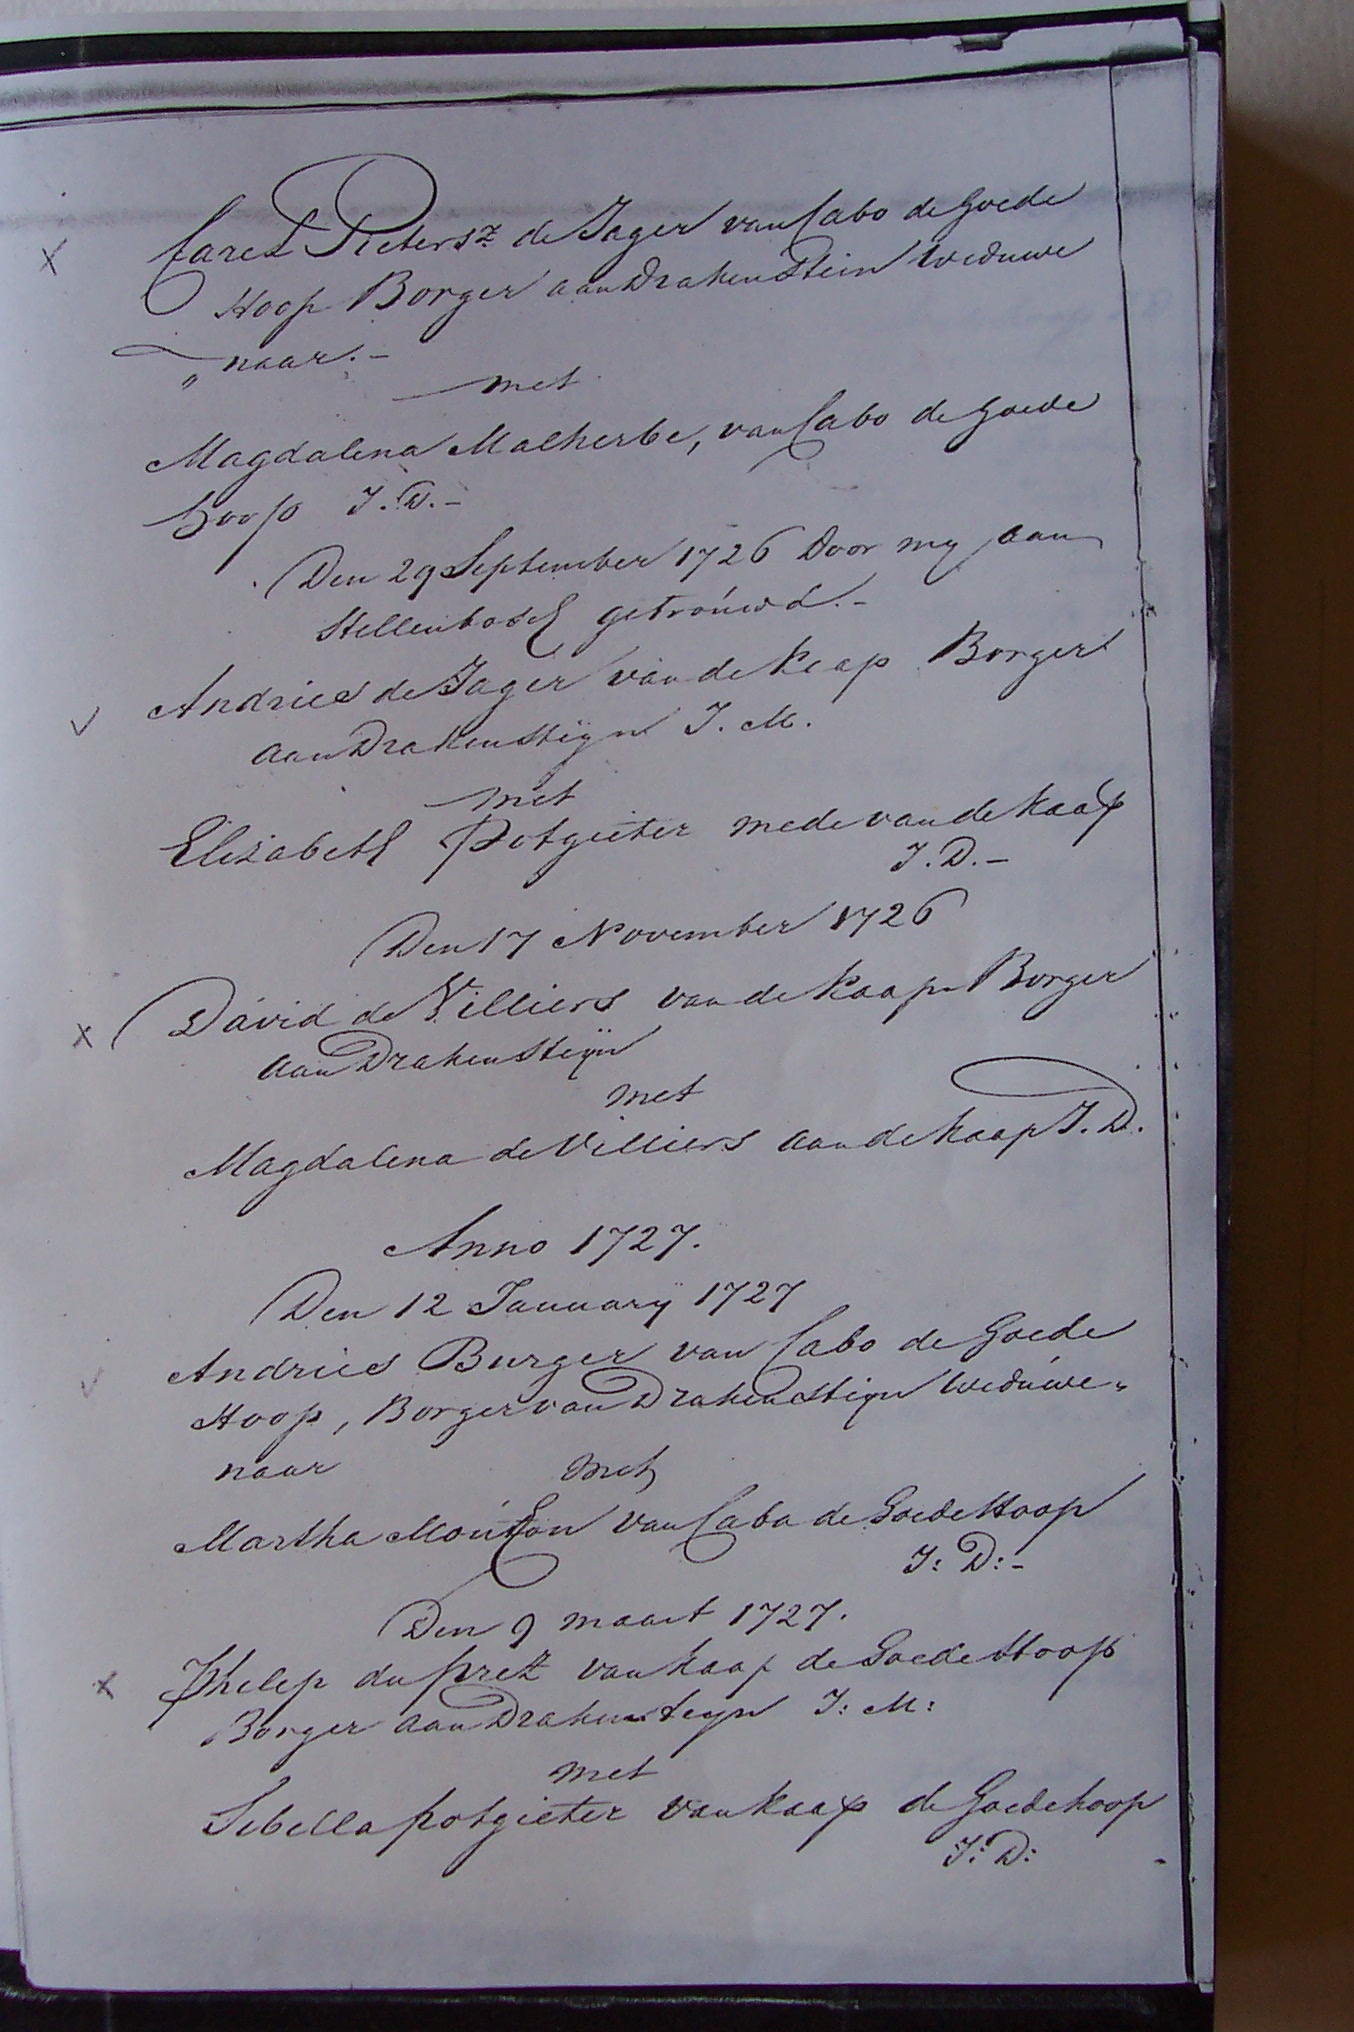 Carel Pietersz de Jager van Cabo de Goede
Hoop Borger aan Drakenstein Weduwe
„ naar.-
met
Magdalena Malherbe, van Cabo de Goede
hoop J.D.-
Den 29 September 1726 Door my aan
Stellenbosch getrouwd.-
Andries de Jager van de Kaap Borger
aan Drakensteijn J. M.
met
Elizabeth Potgieter mede van de Kaap
J.D.-
Den 17 November 1726
David de Villiers van de Kaap Borger
aan Drakensteijn
met
Magdalena de Villiers aan de Kaap J.D.
Anno 1727.
Den 12 January 1727
Andries Burger van Cabo de Goede
Hoop, Borger van Drakensteijn Weduwe„
naar met
Martha Mouton van Cabo de Goede Hoop
J: D:-
Den 9 maart 1727.
Philip du prez van Kaap de Goede Hoop
Borger aan Drakensteyn J: M:
met
Sibella potgieter van Kaap de Goede hoop
J: D: